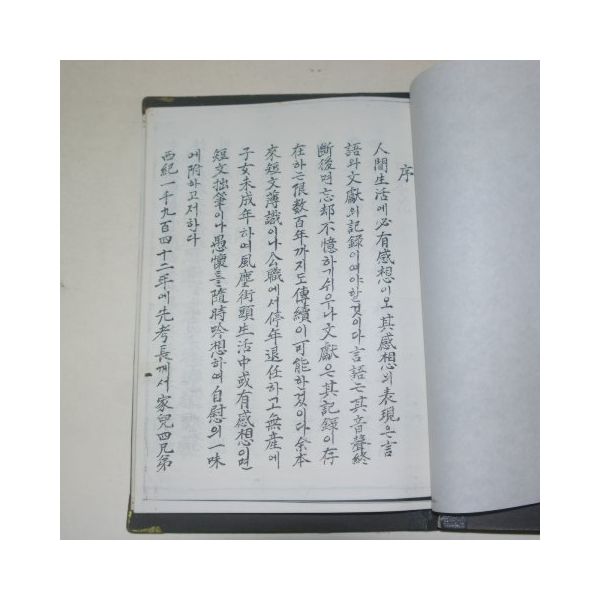 序
人間生活에必有感想이오其感想의表現은言
語와文獻의記錄이여야할것이다言語는其音聲終
斷後며忘却不憶하기쉬우나文獻은其記錄이存
在하는限数百年까지도傳續이可能한것이다余本
來短文薄識이나公職에서停年退任하고無産에
子女未成年하여風塵街頭生活中或有感想이면
短文拙筆이나愚懷를隨時吟想하여自慰의一味
에附하고저한다
西紀一千九百四十二年에先考長께서家兒四兄弟